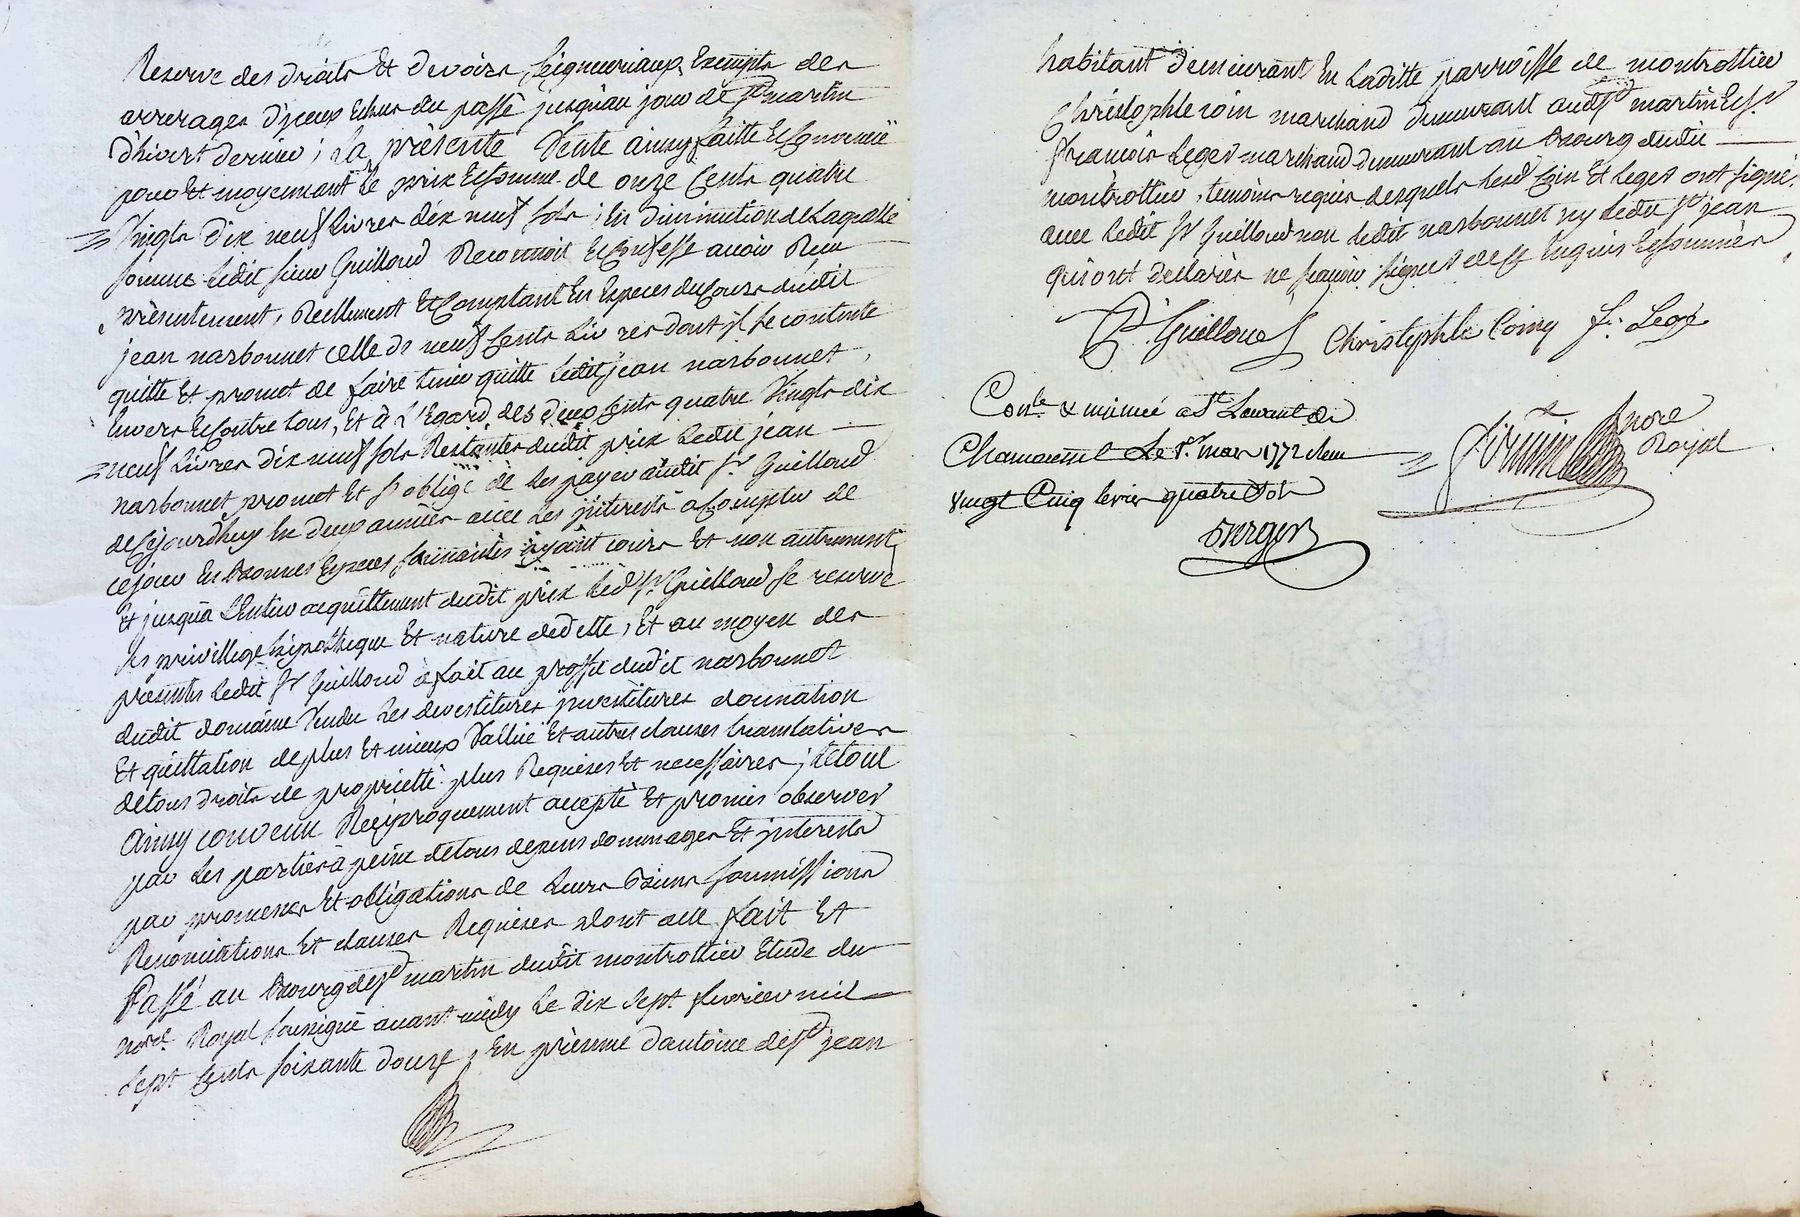 Reserve des droits et devoirs seigneuriaux Exempts des
arrerages d'jceux Echus du passé jusqu'au jour de st martin
d'hivert dernier ; La présente Vente ainsy faitte Et Convenüe
pour Et moyennant Le prix Et somme de onze Cents quatre
Vingts dix neuf Livres dix neuf sols ; En diminution de Laquelle
somme Ledit sieur Guilloud Reconnoit Et Confesse avoir Reçu
présentement, Réellement Et Comptant En Especes du Cours dudit
jean narbonnet celle de neuf Cents Livres dont jl se contente
quitte Et promet de faire tenir quitte Ledit jean narbonnet,
Envers Et Contre tous, Et à L'Egard des deux Cents quatre Vingts dix
neuf Livres dix neuf sols Restantes dudit prix Ledit jean
narbonnet promet Et s'oblige de Les payer audit sr Guilloud
de cejourd'huy En deux années avec Les jnterests a Compter de
ce jour En bonnes Especes sonnantes ayant cours Et non autrement
Et jusqu'à L'Entier acquittement dudit prix Ledt sr Guilloud se reserve
les privillege hypotheque Et nature de dette, Et au moyen des
presentes Ledit sr Guilloud à fait au proffit dudit narbonnet
dudit domaine Vendu Les devestitures jnvestitures donnation
Et quittation de plus Et mieux Vallüe Et autres clauses translatives
de tous droits de proprietté plus Requises Et necessaires ; Le tout
Ainsy convenu Reciproquement accepté Et promis observer
par Les parties à peine de tous depens dommages Et jnterests
par promesses Et obligations de Leurs Biens soumissions
Renonciations Et clauses Requises dont acte fait Et
Passé au bourg de st martin dudit montrottier Etude du
nore Royal soussigné avant midy Le dix sept fevrier mil
sept Cents soixante douze, En présence d'antoine de st jean
habitant demeurant En Laditte parroisse de montrottier
Christophle coin marchand demeurant audt st martin Et sr
françois Leger marchand demeurant au bourg dudit
montrottier, temoins requis desquels Lesd Coin Et Leger ont signé,
avec Ledit sr Guilloud non Ledit narbonnet ny Ledit st jean
qui ont déclarés ne sçavoir signer de ce Enquis Et sommés
Guilloud Christophle Coiny f. Leger
Conlé & insinué a st Laurant de
Chamousset Le 1er mars 1772 Reçu
vingt Cinq livres quatre sols
nore
Royal